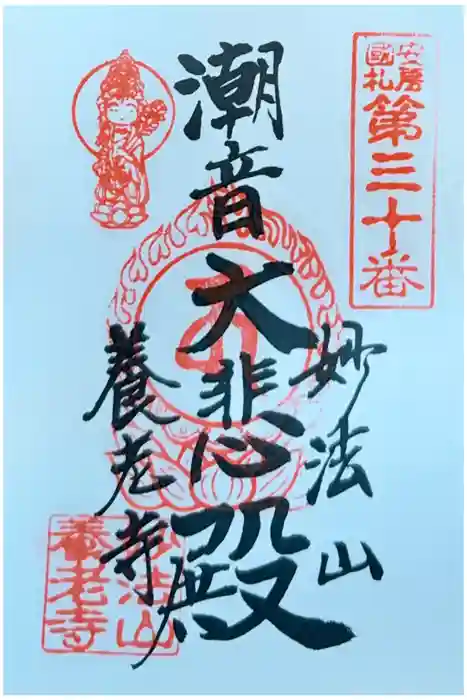 安房
國札
第三十番
妙法山
潮音大悲心殿
養老寺
妙法山
養老寺